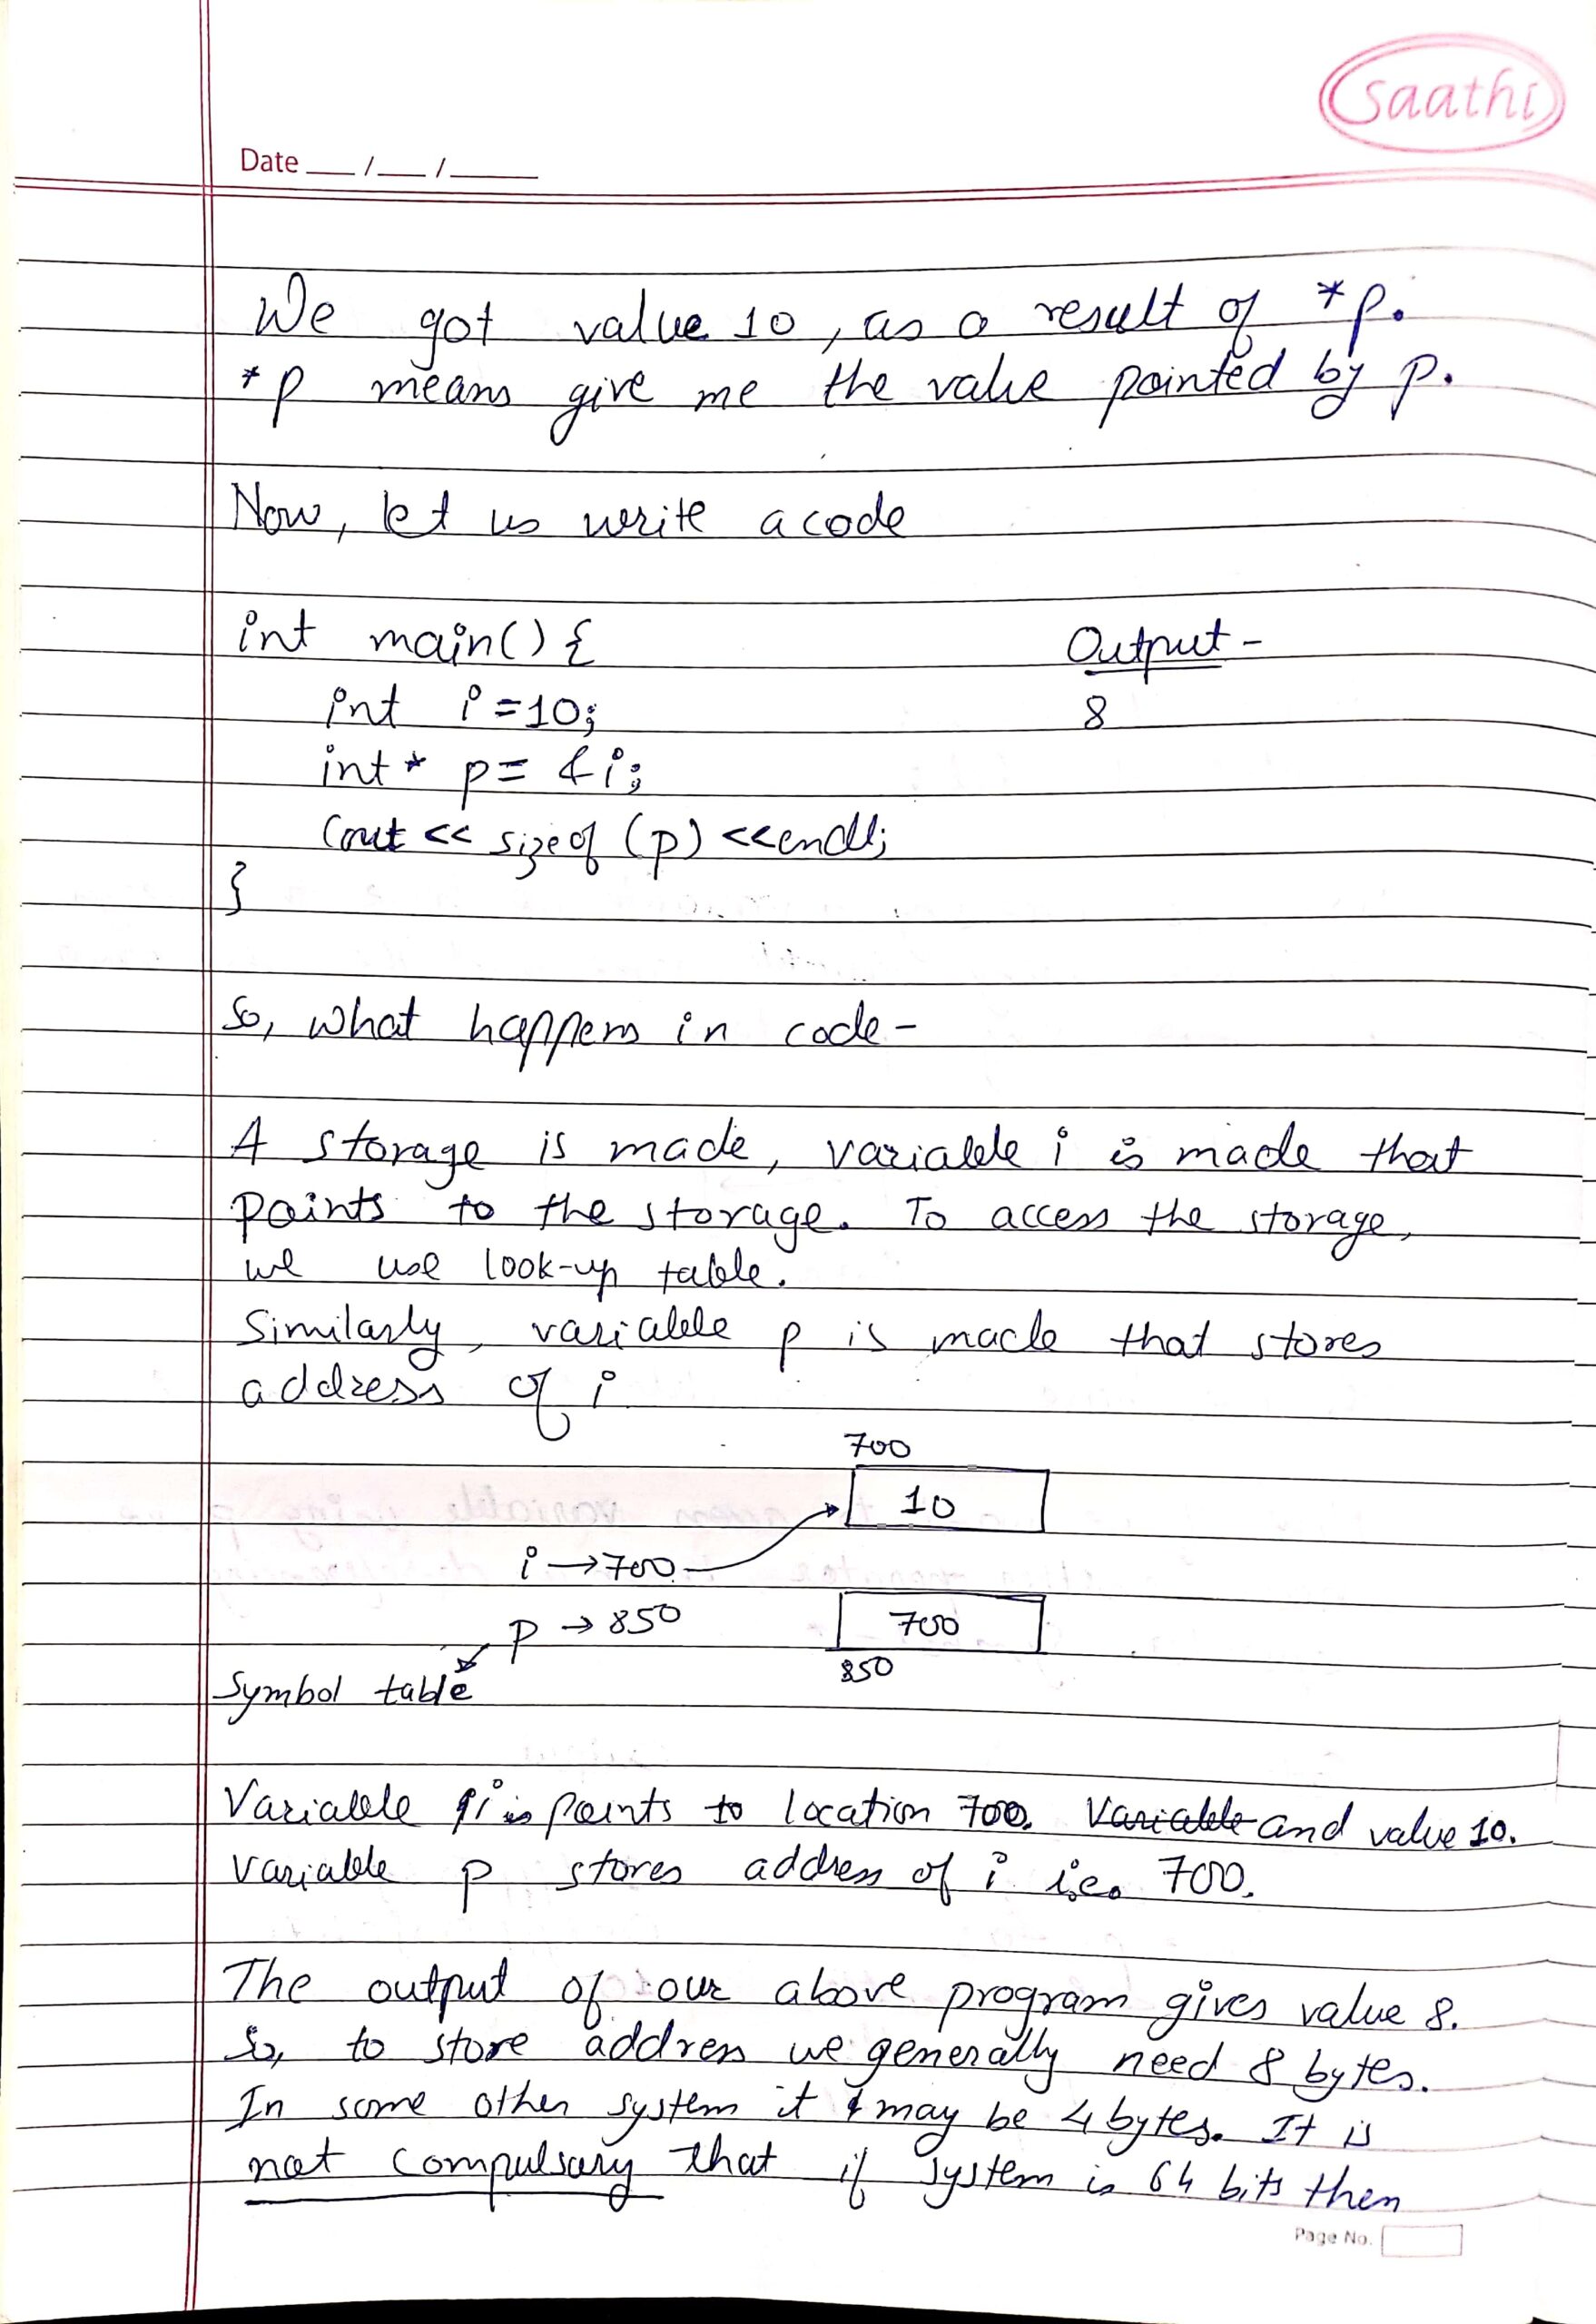 saathi
Date __/__/____
We got value 10, as a result of *p.
*p means give me the value pointed by p.
Now, let us write a code
int main() {
Output -
int i = 10;
8
int* p = &i;
Cout << sizeof (p) << endl;
}
So, what happens in code -
A storage is made, variable i is made that
points to the storage. To access the storage,
we use look-up table.
Similarly, variable p is made that stores
address of i
700
10
i → 700
p → 850
700
850
Symbol table
Variable i points to location 700. Variable and value 10.
Variable p stores address of i i.e. 700.
The output of our above program gives value 8.
So, to store address we generally need 8 bytes.
In some other system it may be 4 bytes. It is
not compulsary that if system is 64 bits then
Page No.